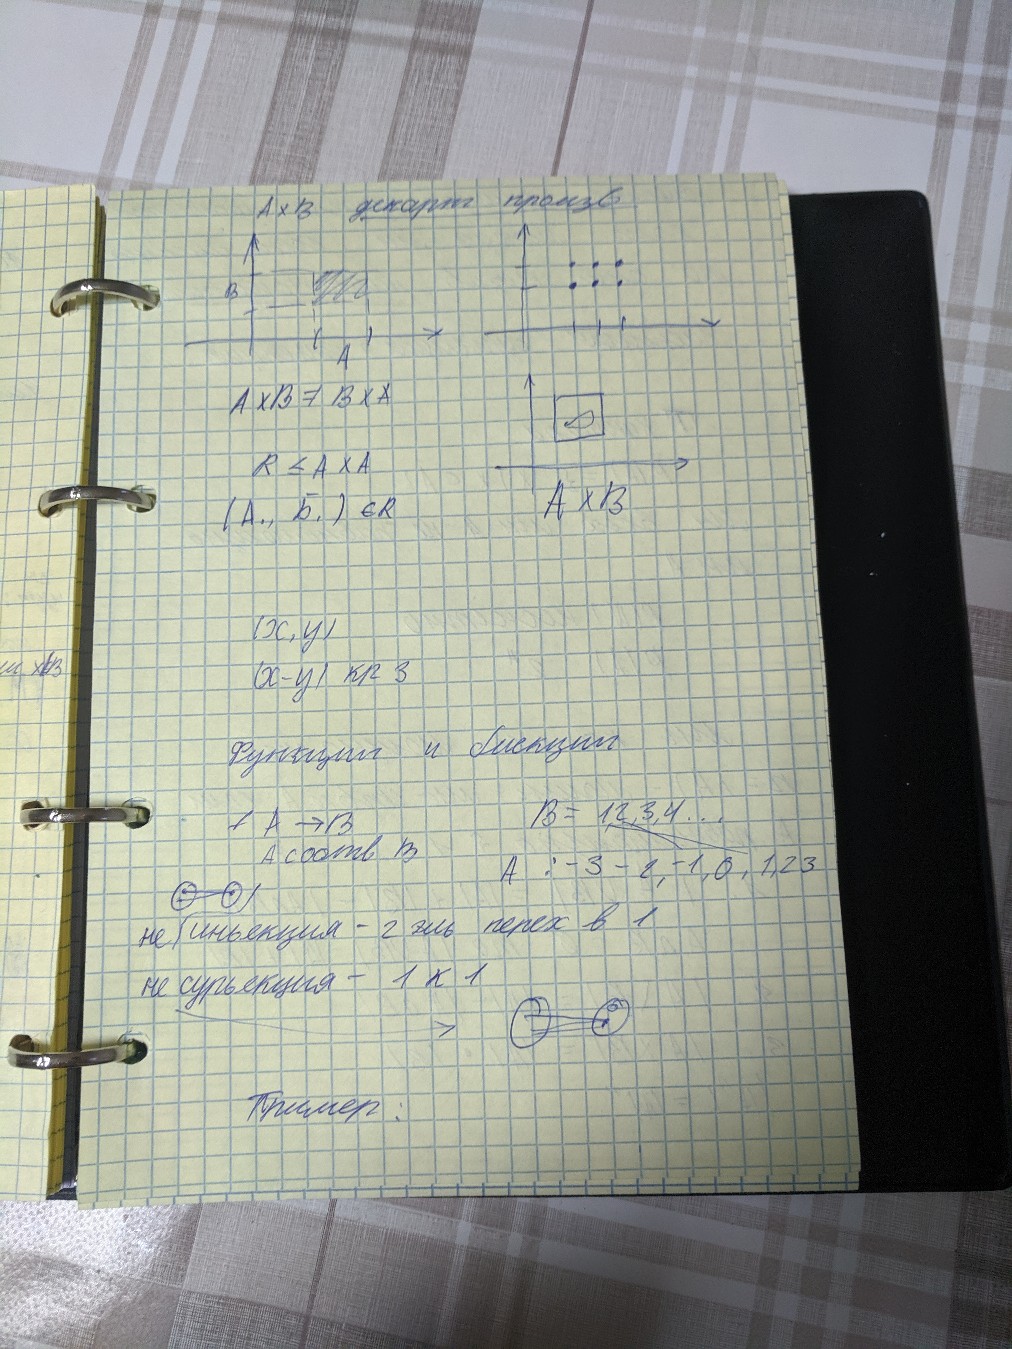 A×B декарт произв
B
A
A×B ≠ B×A
R ≤ A×A
(А., Б.) ∈R
A×B
(x,y)
(x-y) кр 3
Функции и биекции
f A → B
A соотв B
B = 1,2,3,4...
A : -3 -2, -1, 0, 1,23
не инъекция - 2 эль перех в 1
не сурьекция - 1 к 1
Пример: